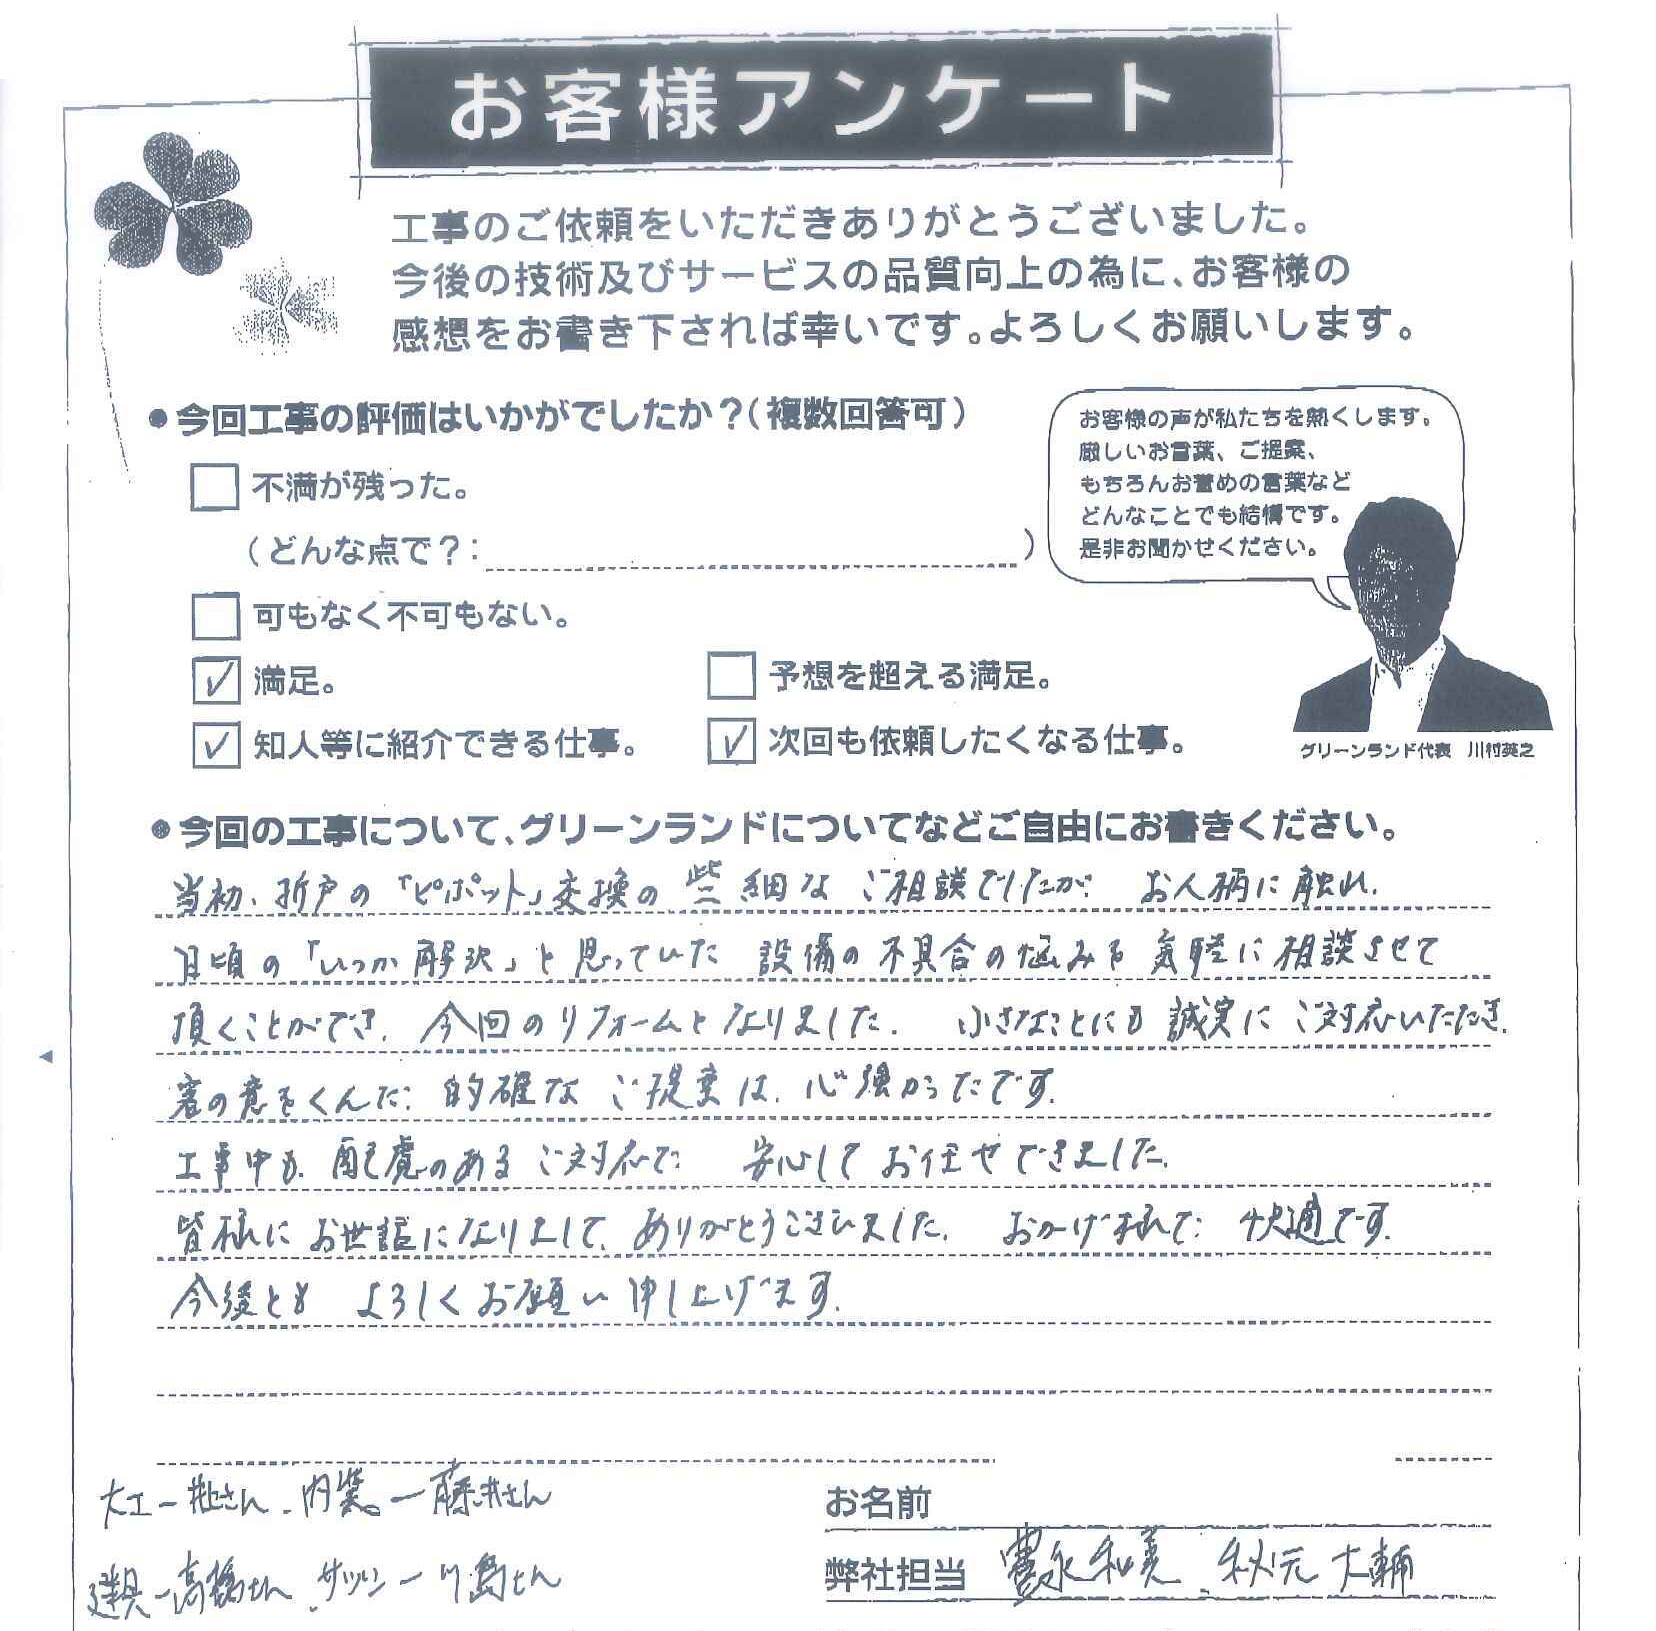 お客様アンケート
工事のご依頼をいただきありがとうございました。
今後の技術及びサービスの品質向上の為に、お客様の
感想をお書き下されば幸いです。よろしくお願いします。
●今回工事の評価はいかがでしたか?(複数回答可)
不満が残った。
(どんな点で?: )
可もなく不可もない。
✓ 満足。
予想を超える満足。
✓ 知人等に紹介できる仕事。
✓ 次回も依頼したくなる仕事。
お客様の声が私たちを熱くします。
厳しいお言葉、ご提案、
もちろんお誉めの言葉など
どんなことでも結構です。
是非お聞かせください。
グリーンランド代表 川村英之
●今回の工事について、グリーンランドについてなどご自由にお書きください。
当初、折戸の「ピボット」交換の些細なご相談でしたが お人柄に触れ、
日頃の「いつか解決」と思っていた 設備の不具合の悩みも気軽に相談させて
頂くことができ、今回のリフォームとなりました。小さなことにも誠実にご対応いただき、
客の意をくんだ 的確なご提案は、心強かったです。
工事中も、配慮のあるご対応で 安心してお任せできました。
皆様にお世話になりまして、ありがとうございました。おかげ様で 快適です。
今後とも よろしくお願い申し上げます。
大工ー 辻さん、内装ー藤井さん
建具ー高橋さん、サッシー川島さん
お名前
弊社担当 豊永和美、秋元大輔